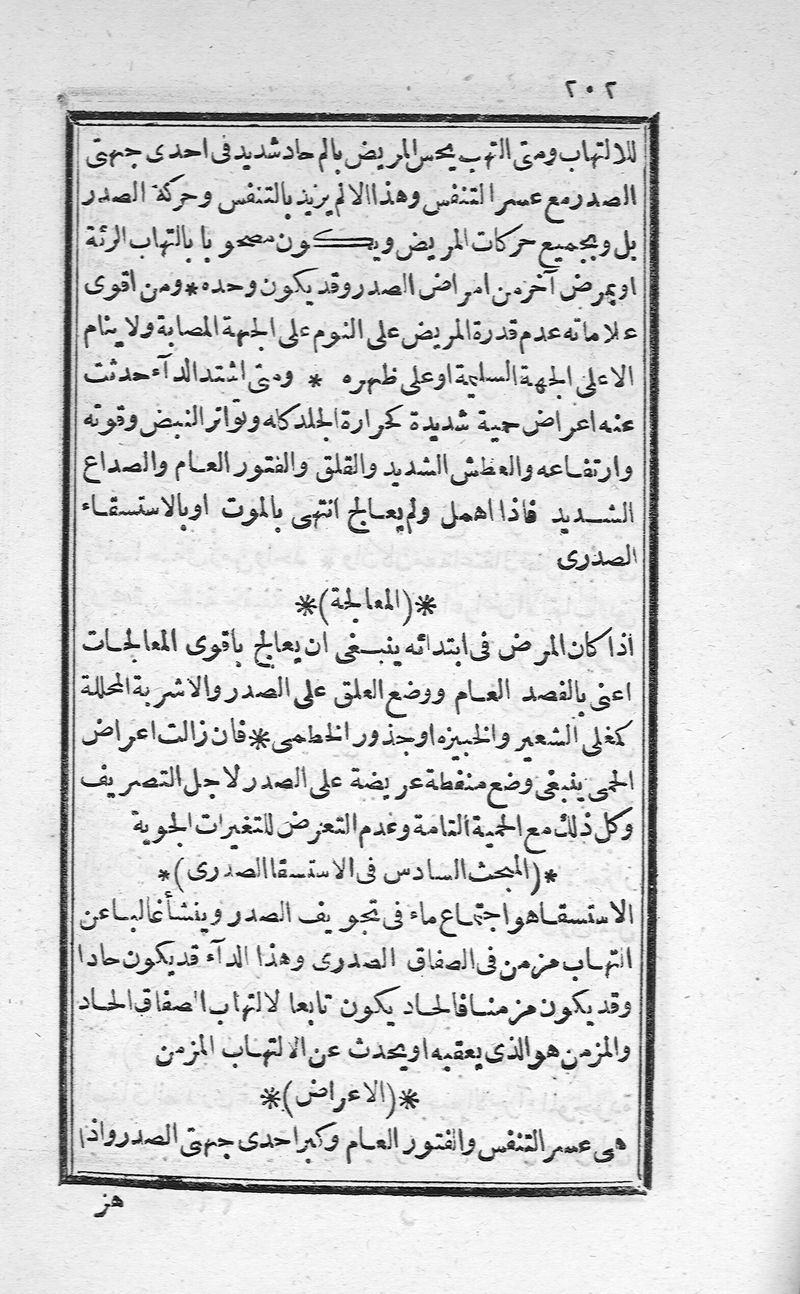 ٢٠٢
للالتهاب ومتى التهب يحس المريض بالم حاد شديد فى احدى جهتى
الصدر مع عسر التنفس وهذا الالم يزيد بالتنفس وحركة الصدر
بل وبجميع حركات المريض ويكون مصحوبا بالتهاب الرئة
او بمرض آخر من امراض الصدر وقد يكون وحده * ومن اقوى
علاماته عدم قدرة المريض على النوم على الجهة المصابة ولا ينام
الا على الجهة السليمة او على ظهره * ومتى اشتد الدآء حدثت
عنه اعراض حمية شديدة كحرارة الجلد كله وتواتر النبض وقوته
وارتفاعه والعطش الشديد والقلق والفتور العام والصداع
الشديد فاذا اهمل ولم يعالج انتهى بالموت او بالاستسقاء
الصدرى
*(المعالجة)*
اذا كان المرض فى ابتدائه ينبغى ان يعالج باقوى المعالجات
اعنى بالفصد العام ووضع العلق على الصدر والاشربة المحللة
كمغلى الشعير والخبيزه او جذور الخطمى * فان زالت اعراض
الحمى ينبغى وضع منفطة عريضة على الصدر لاجل التصريف
وكل ذلك مع الحمية التامة وعدم التعرض للتغيرات الجوية
*(المبحث السادس فى الاستسقا الصدرى)*
الاستسقا هو اجتماع ماء فى تجويف الصدر وينشأ غالبا عن
التهاب مزمن فى الصفاق الصدرى وهذا الدآء قد يكون حادا
وقد يكون مزمنا فالحاد يكون تابعا لالتهاب الصفاق الحاد
والمزمن هو الذى يعقبه او يحدث عن الالتهاب المزمن
*(الاعراض)*
هى عسر التنفس والفتور العام وكبر احدى جهتى الصدر واذا
هز